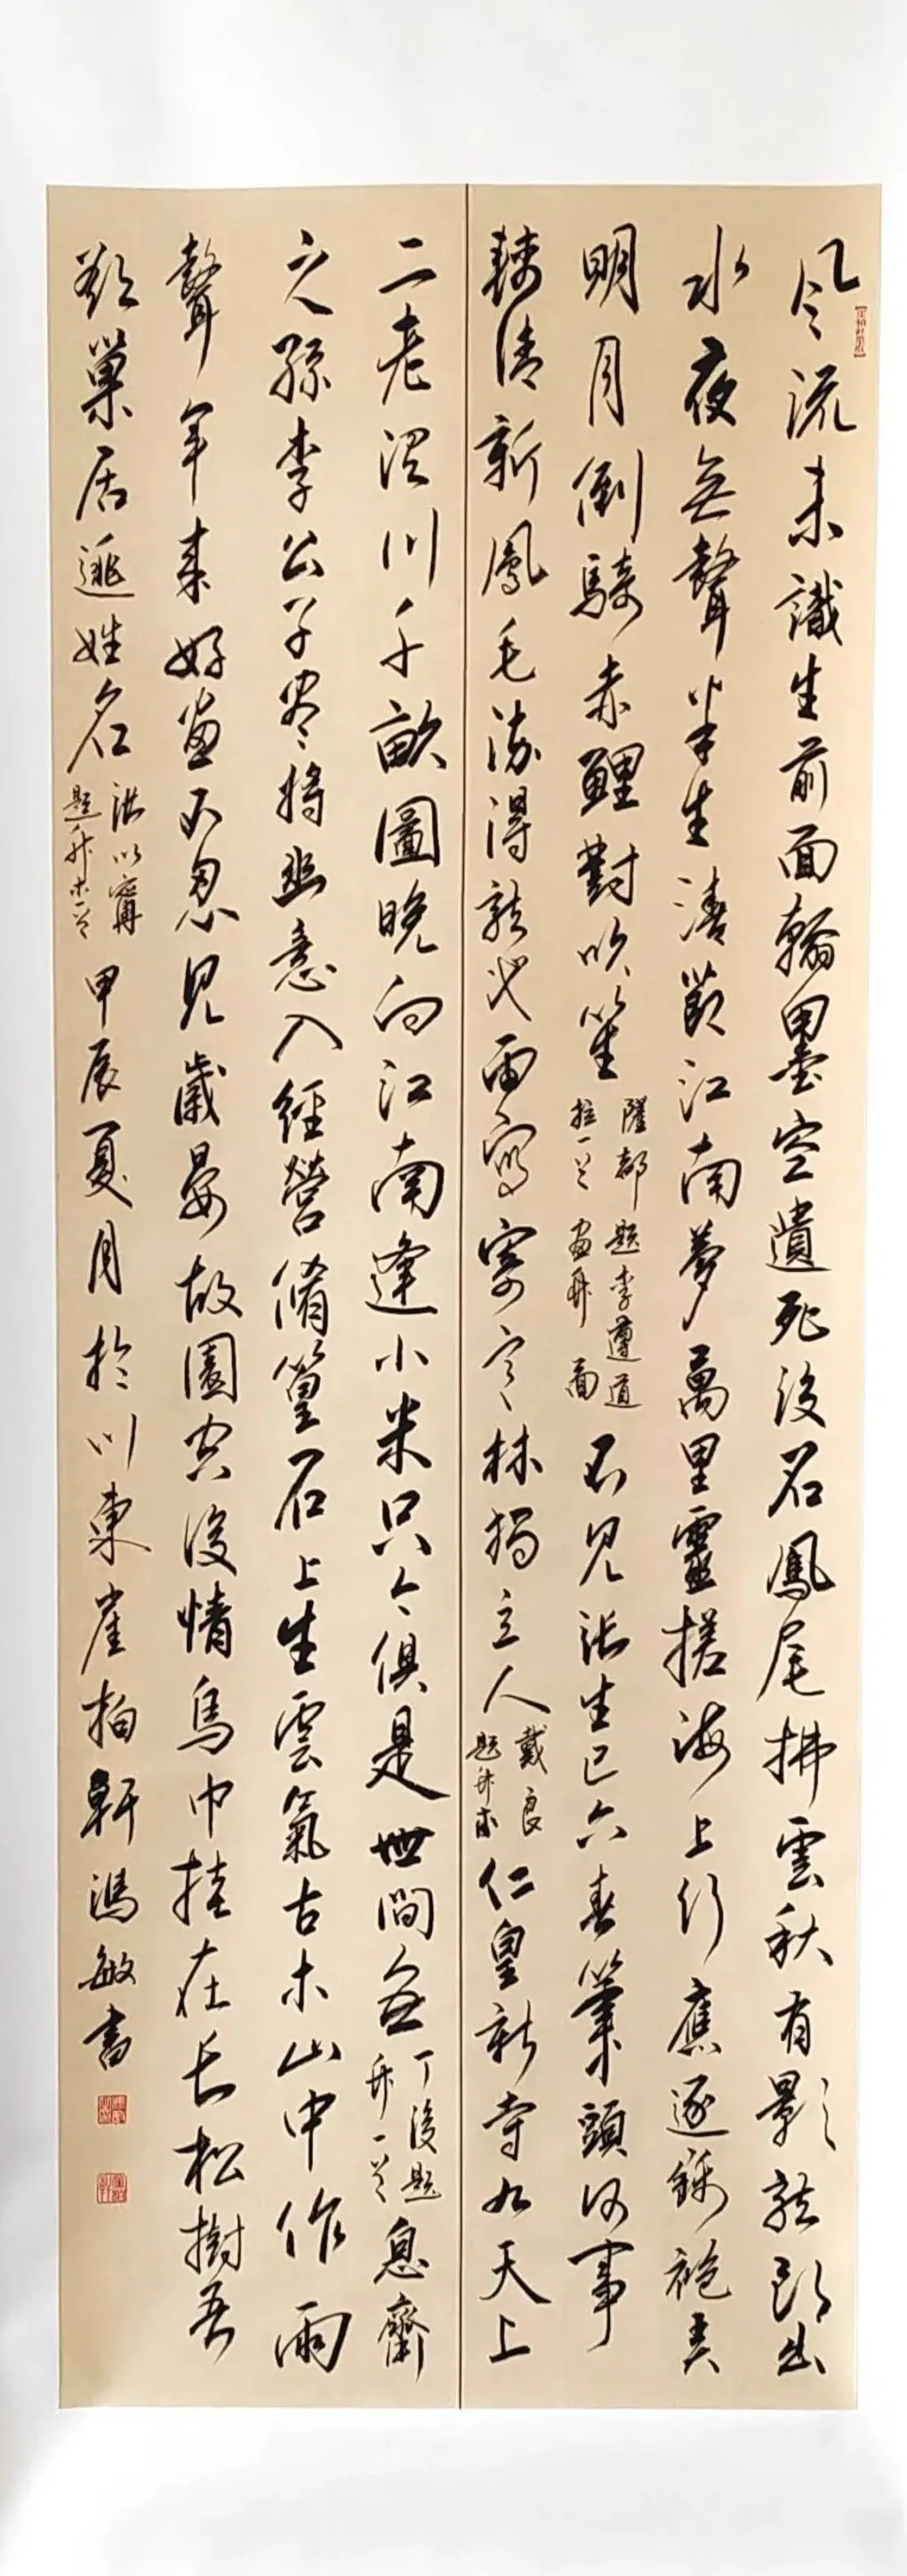 風流未識生前面翰墨空遺死後名鳳尾拂雲秋有影龍頭出
水夜無聲半生清節江南夢萬里靈搓海上行應逐錦袍弄
明月倒騎赤鯉對吹笙薩都拉一首題李遵道畫冊面不見張生已六春筆頭何事
轉清新鳳毛沾得龍池雨寫寄寒林獨立人戴良題竹木仁皇新寺九天上
二老淇川千畝圖晚向江南逢小米只今俱是世間無丁復題竹一首息齋
之孫李公子容將幽意入經營脩篁石上生雲氣古木山中作雨
聲年來好畫不忍見歲晏故園空復情烏巾挂在長松樹吾
欲巢居逃姓名張以寧題竹木一首甲辰夏月於川東崖柏軒馮敏書